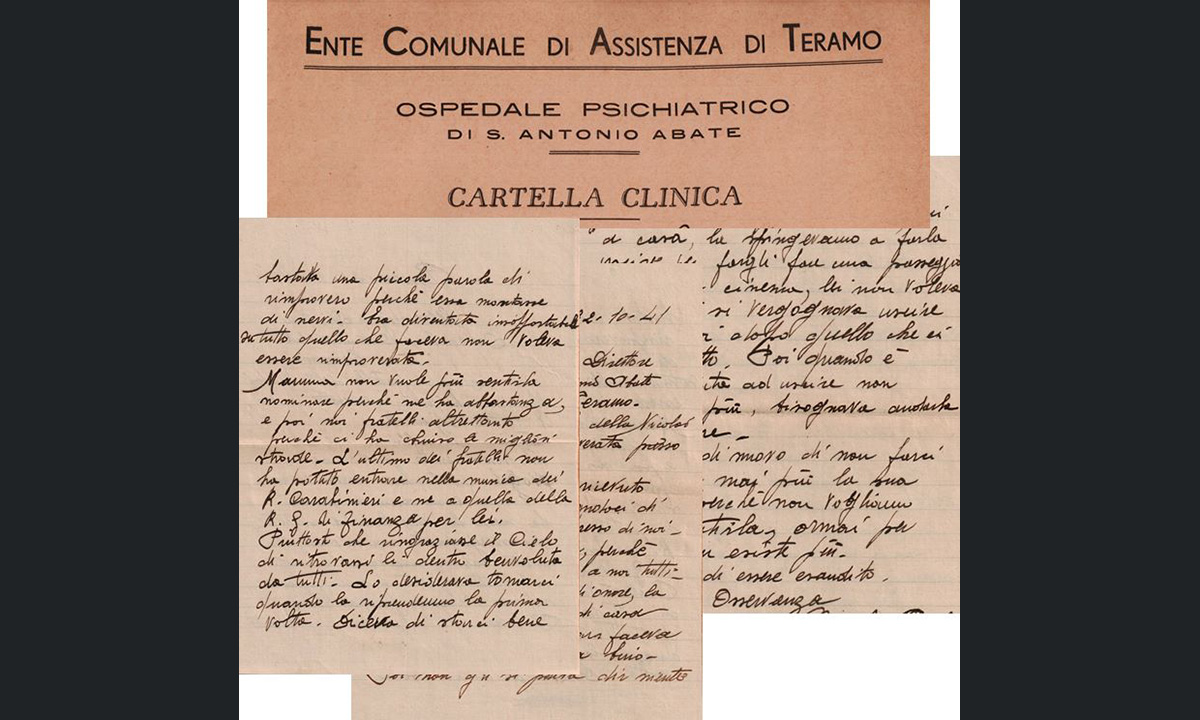 ENTE COMUNALE DI ASSISTENZA DI TERAMO
OSPEDALE PSICHIATRICO
DI S. ANTONIO ABATE
CARTELLA CLINICA
bastava una piccola parola di
rimprovero perchè essa montasse
di nervi. Era diventata insoffortabile
su tutto quello che faceva non voleva
essere rimproverata.
Mamma non vuole più sentirla
nominare perchè ne ha abbastanza,
e poi noi fratelli altrettanto
perchè ci ha chiuso le migliori
strade. L'ultimo dei fratelli non
ha potuto entrare nella musica dei
R. Carabinieri e ne a quella della
R. G. di Finanza per lei.
Piuttosto che ringraziasse il Cielo
di ritrovarsi lì dentro benvoluta
da tutti. Lo desiderava tornarci
quando la riprendemmo la prima
volta. Diceva di starci bene
2-10-41
Direttore
Abate
Teramo.
della Nicolai
presso
ricevuto
di
di noi-
, perchè
a noi tutti-
d'onore, la
di casa
faceva
buio-
Poi non gli si poteva dir niente
a casa, la spingevamo a farla
fargli fare una passeggia
cinema, lei non voleva
si vergognava uscire
dopo quello che ci
Poi quando è
ad uscire non
più, bisognava andarla
di nuovo di non farci
mai più la sua
perchè non vogliamo
ormai per
esiste più.
di essere esaudito.
Osservanza